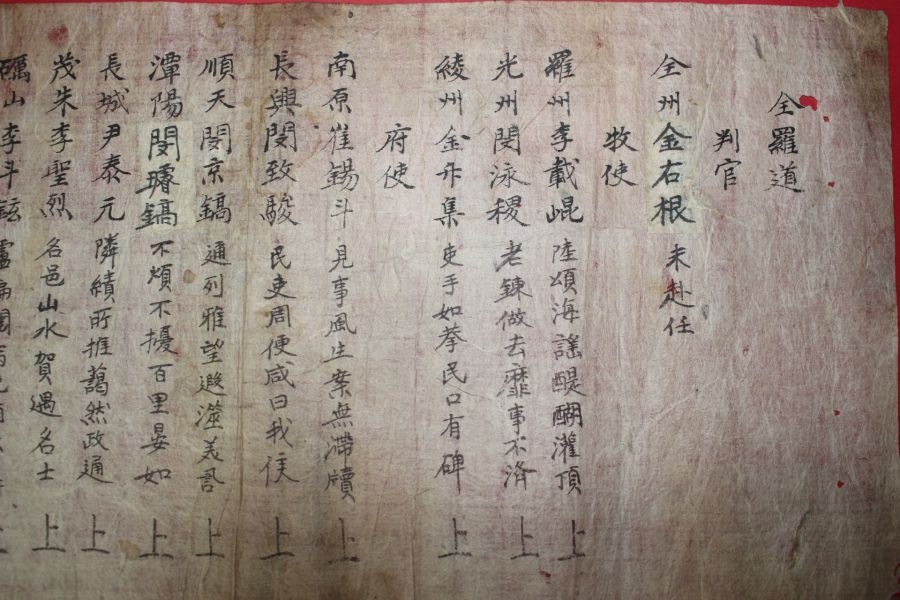 全羅道
判官
全州 金右根 未赴任
牧使
羅州 李載崐 陸頌海謠醍醐灌頂 上
光州 閔泳稷 老鍊做去靡事不済 上
綾州 金升集 吏手如拳民口有碑 上
府使
南原 崔錫斗 見事風生案無滯牘 上
長興 閔致駿 民吏周便咸曰我侯 上
順天 閔京鎬 通列雅望遐滋美 上
潭陽 閔璿鎬 不煩不擾百里晏如 上
長城 尹泰元 隣績所推藹然政通 上
茂朱 李聖烈 名邑山水賀遇名士 上
礪山 李斗鉉